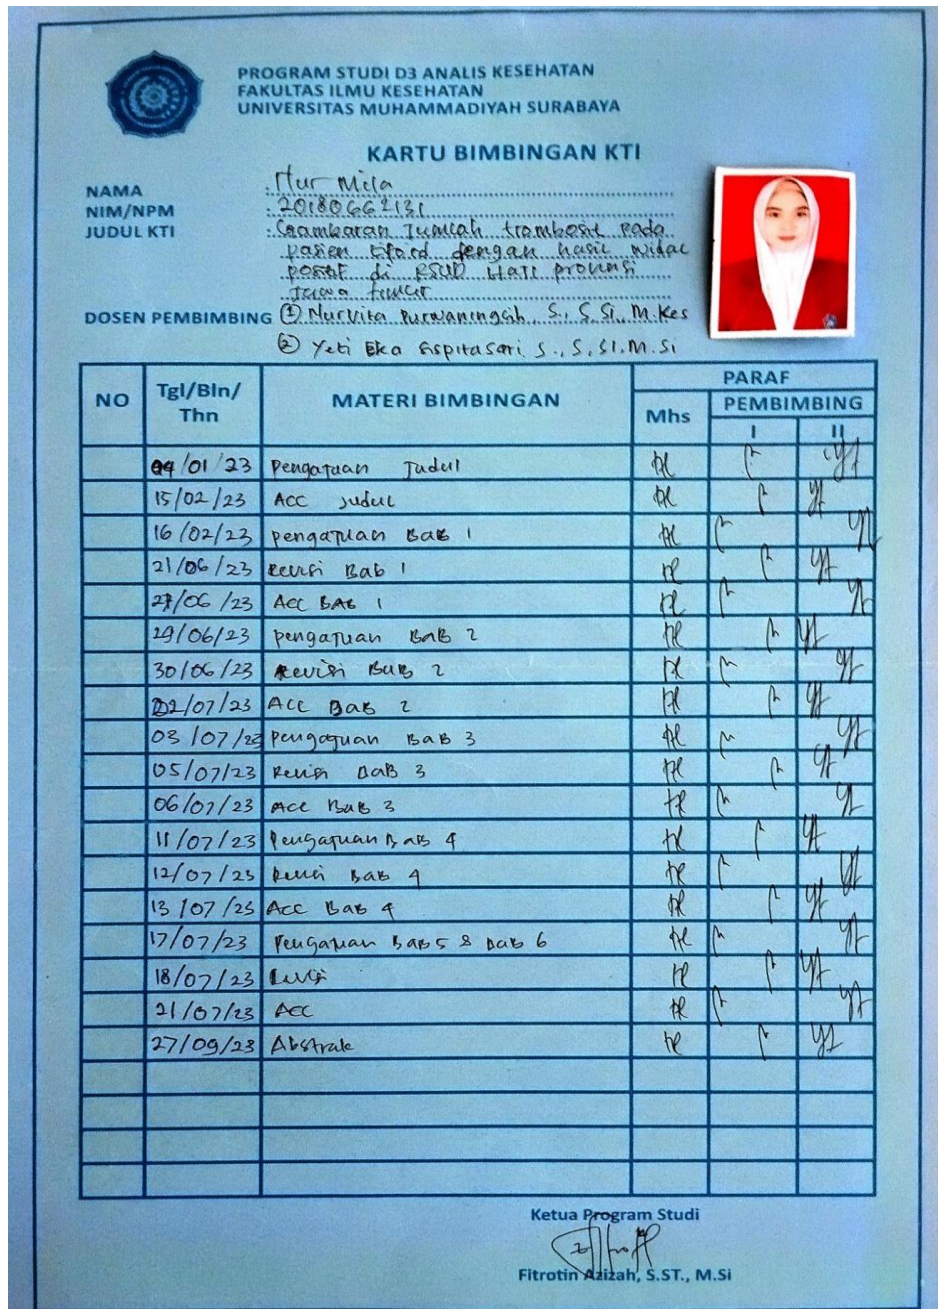 PROGRAM STUDI D3 ANALIS KESEHATAN
FAKULTAS ILMU KESEHATAN
UNIVERSITAS MUHAMMADIYAH SURABAYA
KARTU BIMBINGAN KTI
NAMA : Nur Mila
NIM/NPM : 20180662131
JUDUL KTI : Gambaran Jumlah trombosit pada
pasien tifoid dengan hasil widal
positif di RSUD Haji provinsi
Jawa timur
DOSEN PEMBIMBING ① Nurvita Purwaningsih, S., S.Si., M.Kes
② Yeti Eka Sispitasari S., S.SI.M.Si
NO Tgl/Bln/Thn MATERI BIMBINGAN PARAF
Mhs PEMBIMBING
I II
04/01/23 Pengajuan Judul
15/02/23 ACC Judul
16/02/23 pengajuan BaB 1
21/06/23 Revisi Bab 1
27/06/23 Acc BAB 1
29/06/23 pengajuan BaB 2
30/06/23 Revisi BaB 2
02/07/23 ACC BaB 2
03/07/23 pengajuan BaB 3
05/07/23 Revisi BaB 3
06/07/23 Acc BaB 3
11/07/23 Pengajuan BaB 4
12/07/23 Revisi BaB 4
13/07/23 Acc BaB 4
17/07/23 Pengajuan Bab 5 & Bab 6
18/07/23 Revisi
21/07/23 Acc
27/09/23 Abstrak
Ketua Program Studi
Fitrotin Azizah, S.ST., M.Si